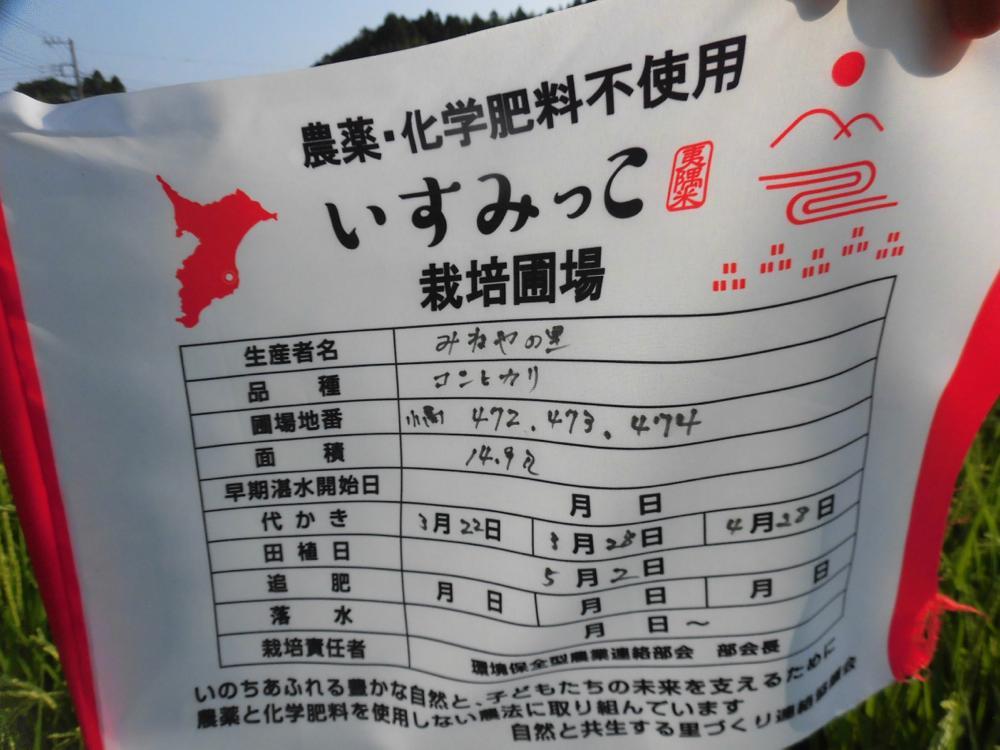 農薬・化学肥料不使用
いすみっこ 夷隅米
栽培圃場
生産者名 みねやの里
品種 コシヒカリ
圃場地番 472.473.474
面積 14.9a
早期湛水開始日 月 日
代かき 3月22日 3月28日 4月28日
田植日 5月2日
追肥 月 日 月 日 月 日
落水 月 日~
栽培責任者 環境保全型農業連絡部会 部会長
いのちあふれる豊かな自然と、子どもたちの未来を支えるために
農薬と化学肥料を使用しない農法に取り組んでいます
自然と共生する里づくり連絡協議会